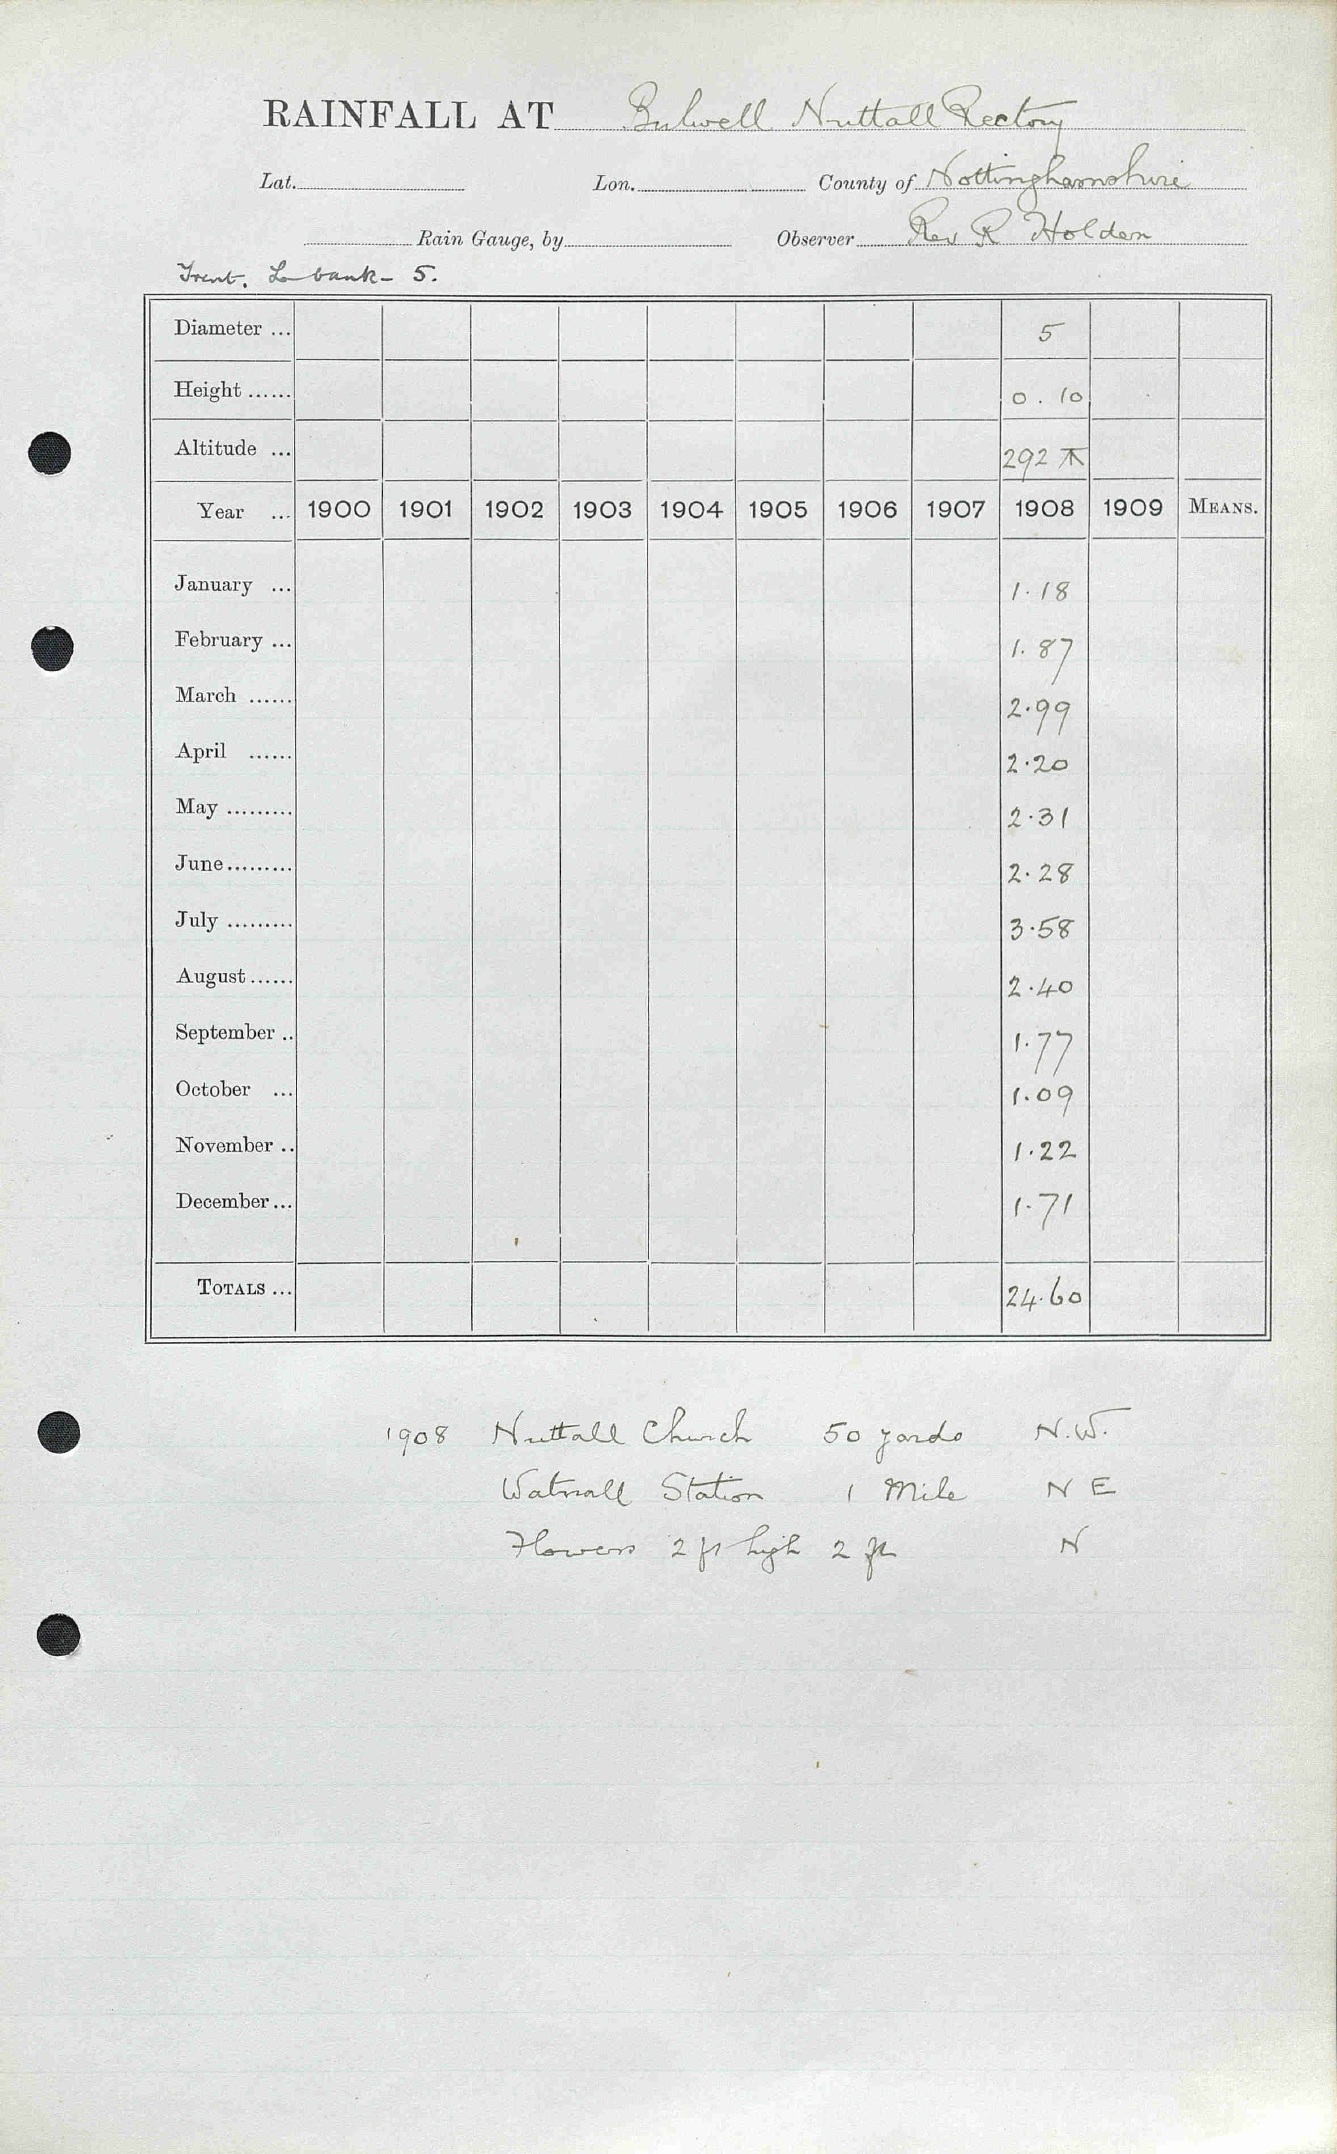 RAINFALL AT Bulwell Nuttall Rectory
Lat. Lon. County of Nottinghamshire
Rain Gauge, by Observer Rev R Holden
Trent. L bank - 5.
Diameter ... 5
Height ...... 0 . 10
Altitude ... 292
Year ... 1900 1901 1902 1903 1904 1905 1906 1907 1908 1909 MEANS.
January ... 1.18
February ... 1.87
March ...... 2.99
April ...... 2.20
May ......... 2.31
June......... 2.28
July ......... 3.58
August...... 2.40
September .. 1.77
October ... 1.09
November .. 1.22
December... 1.71
TOTALS ... 24.60
1908 Nuttall Church 50 yards N.W.
Watnall Station 1 Mile N E
Flowers 2 ft high 2 ft N